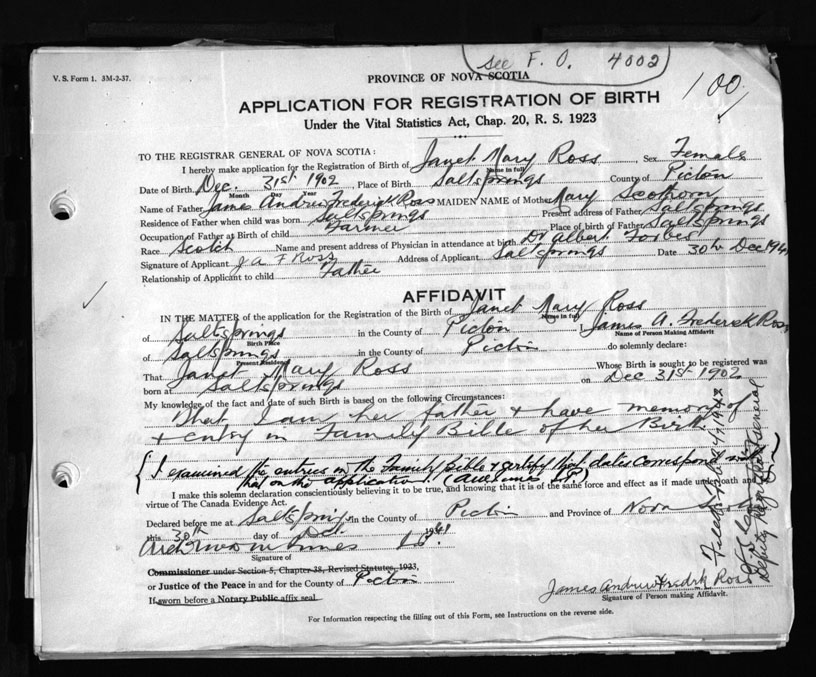 see F. O. 4002
V. S. Form 1. 3M-2-37.
PROVINCE OF NOVA SCOTIA
100
APPLICATION FOR REGISTRATION OF BIRTH
Under the Vital Statistics Act, Chap. 20, R. S. 1923
TO THE REGISTRAR GENERAL OF NOVA SCOTIA:
I hereby make application for the Registration of Birth of Janet Mary Ross Sex Female
Name in full
Date of Birth Dec. 31st 1902 Place of Birth Saltsprings County of Picton
Month Day Year
Name of Father James Andrew Frederick Ross MAIDEN NAME of Mother Mary Scothorn
Residence of Father when child was born Saltsprings Present address of Father Saltsprings
Occupation of Father at Birth of child Farmer Place of birth of Father Saltsprings
Race Scotch Name and present address of Physician in attendance at birth Dr Albert Forbes
Signature of Applicant J A F Ross Address of Applicant Saltsprings Date 30th Dec 1941
Relationship of Applicant to child Father
AFFIDAVIT
IN THE MATTER of the application for the Registration of the Birth of Janet Mary Ross
Name in full
of Saltsprings in the County of Picton I James A. Frederick Ross
Birth Place Name of Person Making Affidavit
of Saltsprings in the County of Picton do solemnly declare:
Present Residence
That Janet Mary Ross Whose Birth is sought to be registered was
born at Saltsprings on Dec 31st 1902
My knowledge of the fact and date of such Birth is based on the following Circumstances:
That I am her father & have memory of
& entry in Family Bible of her Birth
I examined the entries in the Family Bible & certify that dates correspond with
that on the application.
I make this solemn declaration conscientiously believing it to be true, and knowing that it is of the same force and effect as if made under oath and
virtue of The Canada Evidence Act.
Declared before me at Saltsprings in the County of Picton and Province of Nova Scotia
this 30th day of Dec. 1941
Signature of
Commissioner under Section 5, Chapter 38, Revised Statutes, 1923,
or Justice of the Peace in and for the County of Picton
If sworn before a Notary Public affix seal.
James Andrew Fredrk Ross
Signature of Person making Affidavit.
For Information respecting the filling out of this Form, see Instructions on the reverse side.
Deputy Registrar General